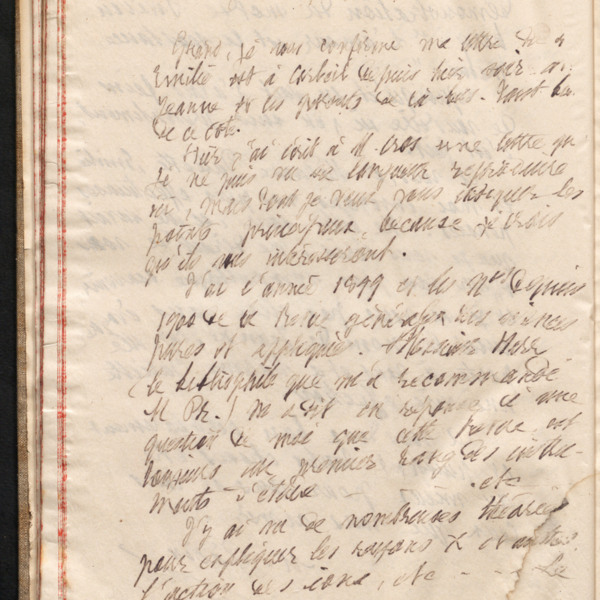 je vous confirme ma lettre de
Emilie est à Corbeil depuis hier soir
Jeanne et les
de ce côté.
Hier j'ai écrit à M. Cros une lettre que
je ne puis vu sa longueur reproduire
ici, mais dont je veux vous indiquer les
points principaux, because je crois
qu'ils vous intéresseront.
J'ai l'année 1899 et les Nos depuis
1900 de la Revue générale des sciences
pures et appliquées. Monsieur
(le bibliophile que m'a recommandé
M. Ph.) m'a dit en réponse à une
question de moi que cette revue est
toujours au premier rang des
d'étude etc
J'y ai vu de nombreuses théories
pour expliquer les rayons X et autres
l'action des ions, etc - - La